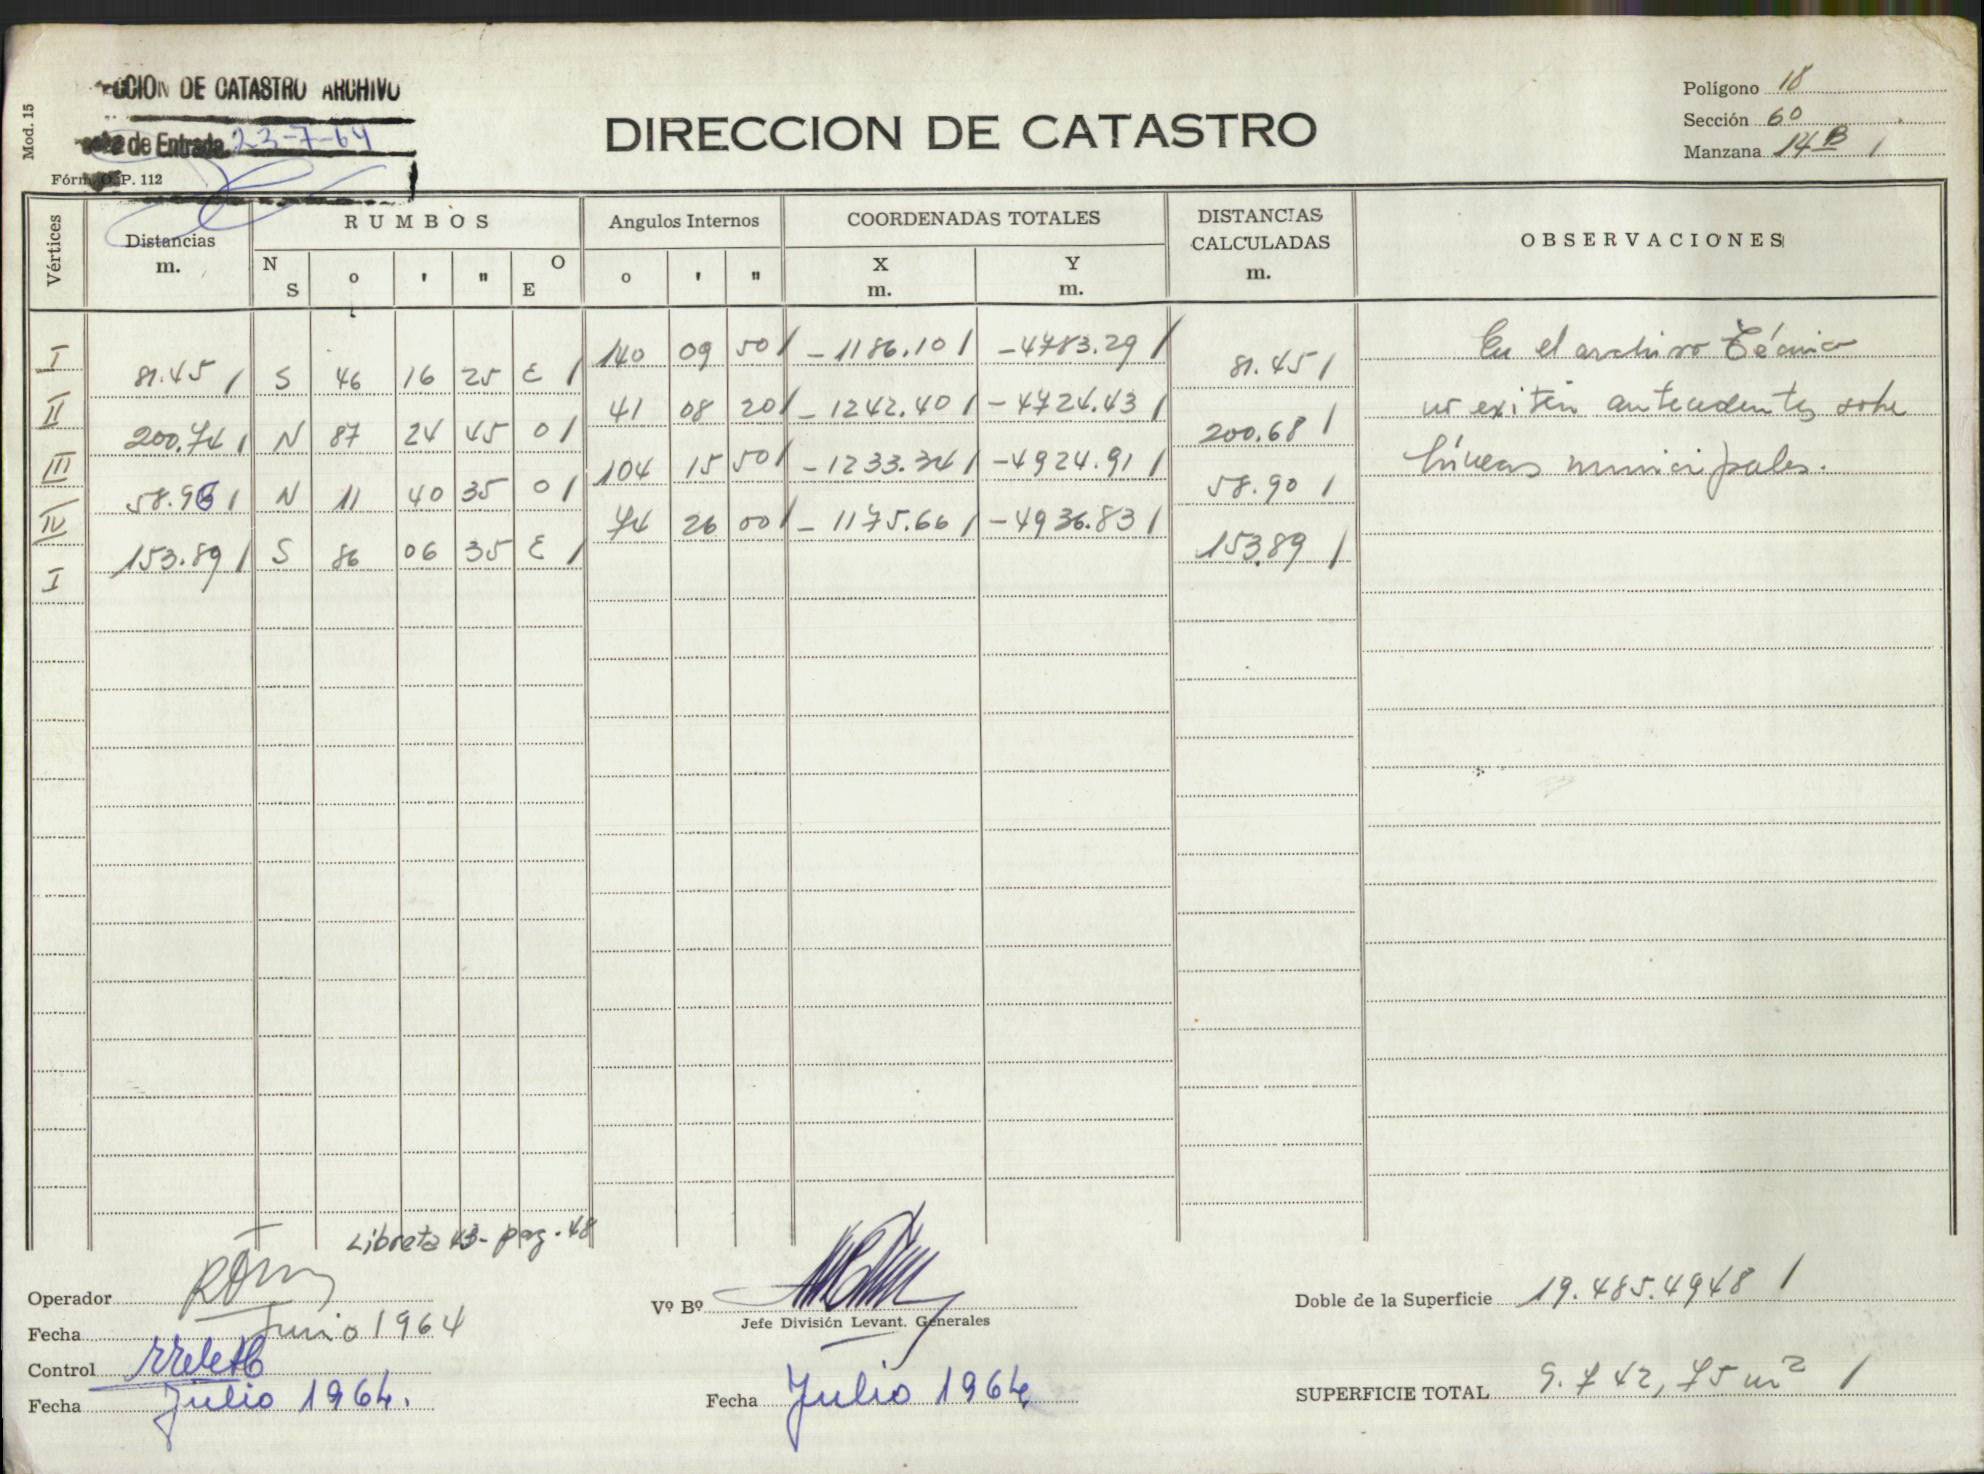 DE CATASTRO ARCHIVO
de Entrada 23-7-64
Mod. 15
Fórm. O. P. 112
DIRECCION DE CATASTRO
Polígono 18
Sección 60
Manzana 14 B /
Vértices
Distancias
m.
RUMBOS
N
S
o ' "
O
E
Angulos Internos
o ' "
COORDENADAS TOTALES
X
m.
Y
m.
DISTANCIAS
CALCULADAS
m.
OBSERVACIONES
I 140 09 50 / -1186.10 / -4783.29 /
81.45 / S 46 16 25 E / 81.45 /
II 41 08 20 / -1242.40 / -4724.43 /
200.74 / N 87 24 45 O / 200.68 /
III 104 15 50 / -1233.34 / -4924.91 /
58.96 / N 11 40 35 O / 58.90 /
IV 74 26 00 / -1175.66 / -4936.83 /
153.89 / S 86 06 35 E / 153.89 /
I
En el archivo Técnico
no existen antecedentes sobre
líneas municipales.
Libreta 43- pag. 48
Operador
Fecha Junio 1964
Control
Fecha Julio 1964.
Vº Bº
Jefe División Levant. Generales
Fecha Julio 1964
Doble de la Superficie 19.485.4948 /
SUPERFICIE TOTAL 9.742,75 m2 /